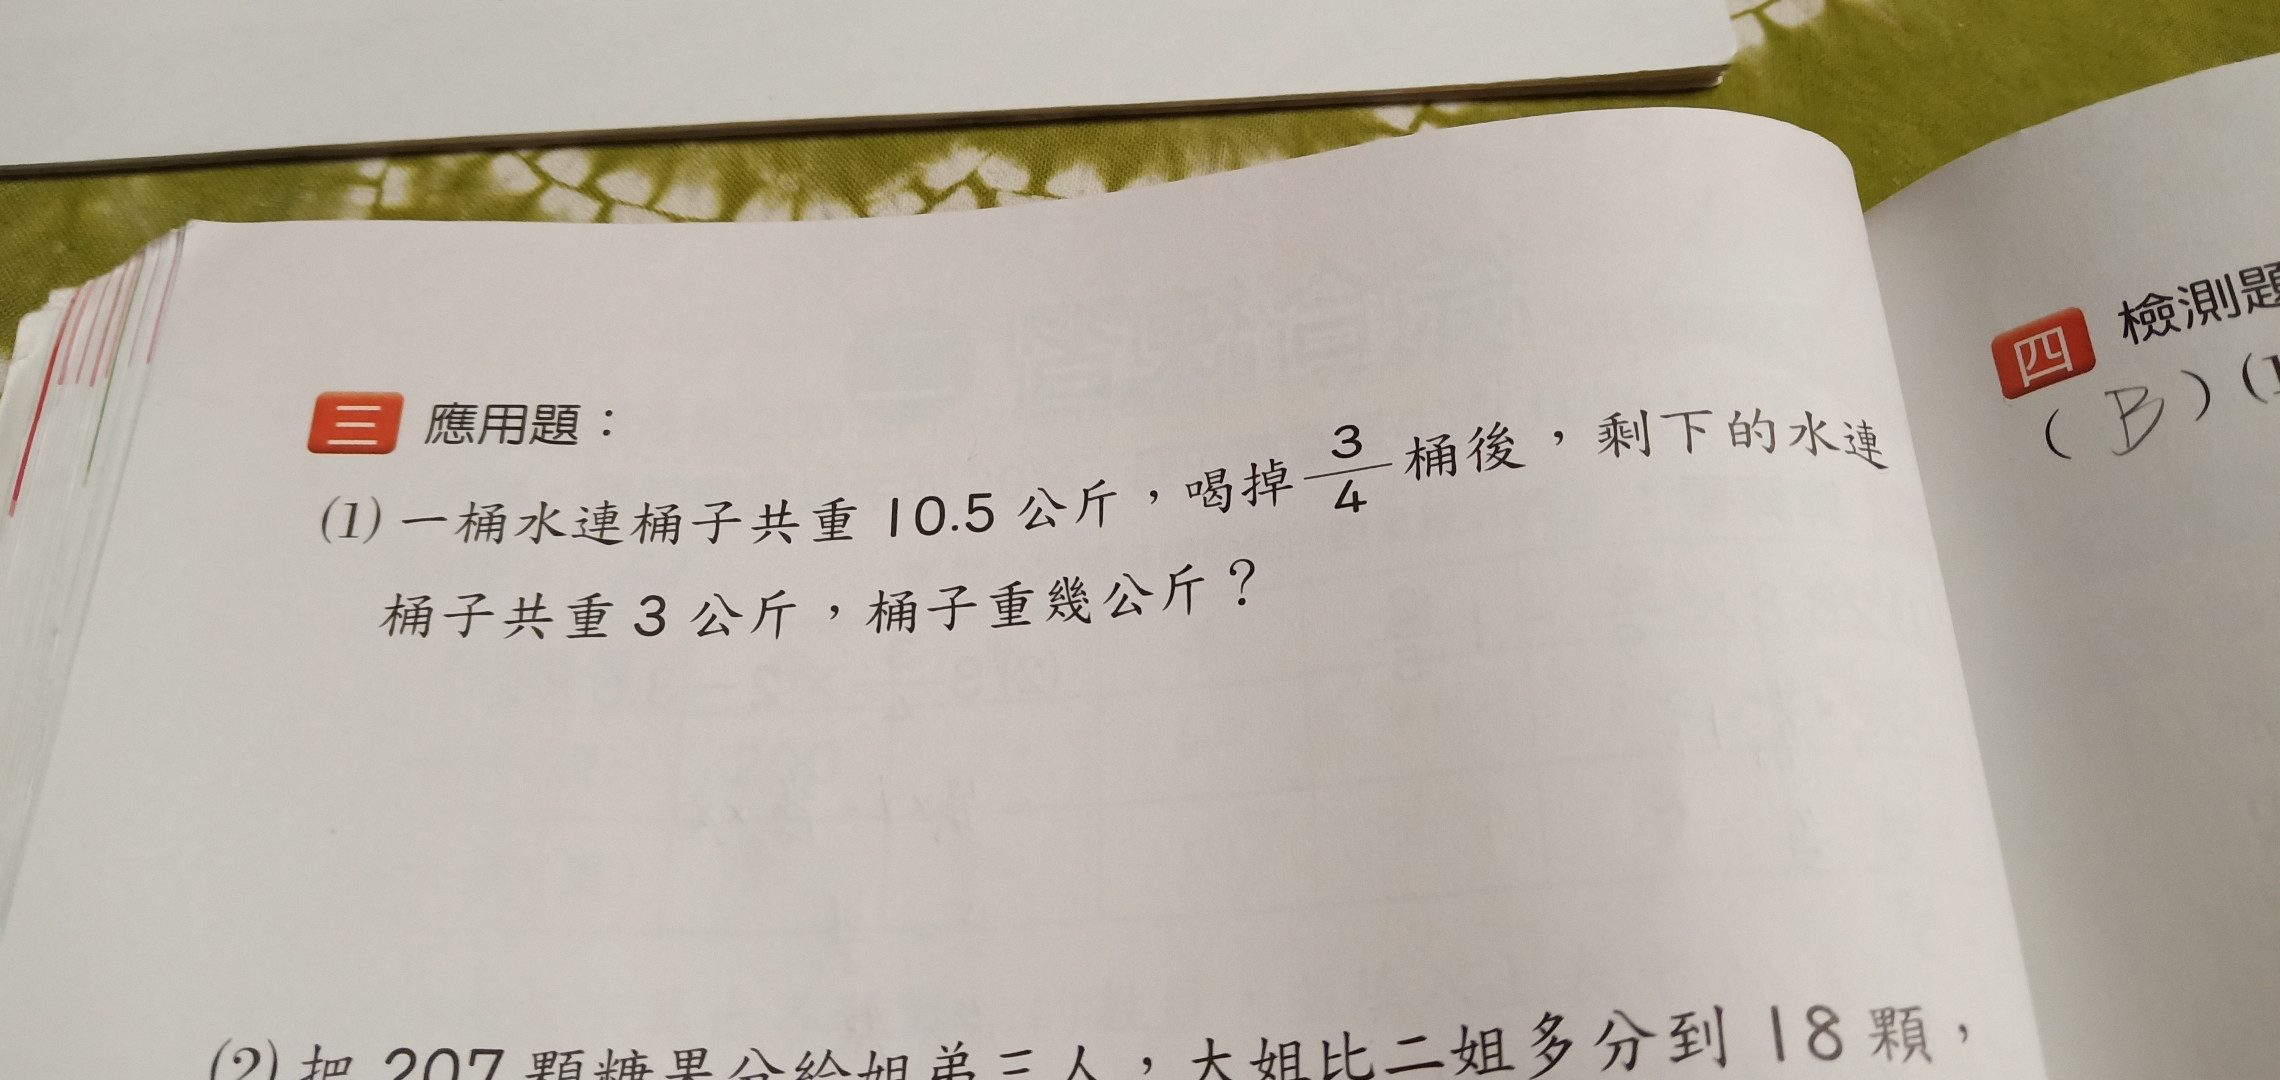 三 應用題：
(1) 一桶水連桶子共重 10.5 公斤，喝掉 3/4 桶後，剩下的水連
桶子共重 3 公斤，桶子重幾公斤？
(2) 把 207 顆糖果分給姐弟三人，大姐比二姐多分到 18 顆，
四 檢測題
( B ) (1